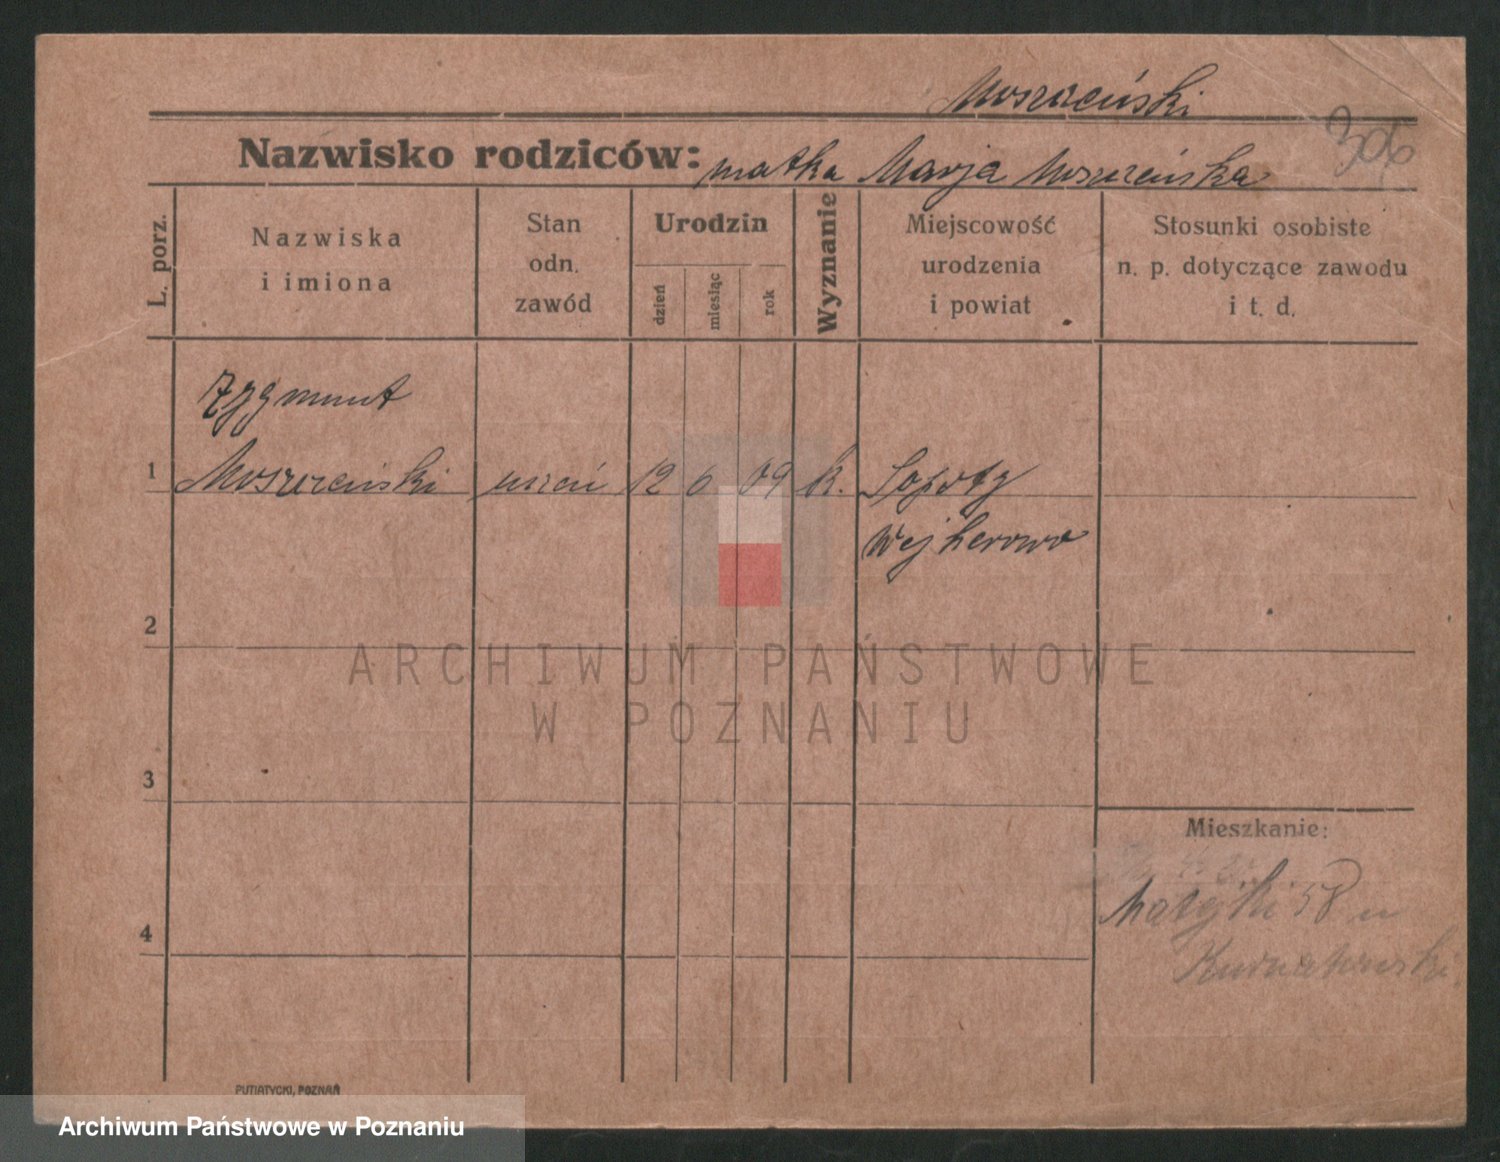 Moszczeński
306
Nazwisko rodziców: matka Marja Moszczeńska
L. porz.
Nazwiska
i imiona
Stan
odn.
zawód
Urodzin
dzień
miesiąc
rok
Wyznanie
Miejscowość
urodzenia
i powiat
Stosunki osobiste
n. p. dotyczące zawodu
i t. d.
Zygmunt
1 Moszczeński uczeń 12 6 09 k. Sopoty
Wejherowo
2
ARCHIWUM PAŃSTWOWE
W POZNANIU
3
Mieszkanie:
Matejki 58 u
4
PUTIATYCKI, POZNAŃ
Archiwum Państwowe w Poznaniu